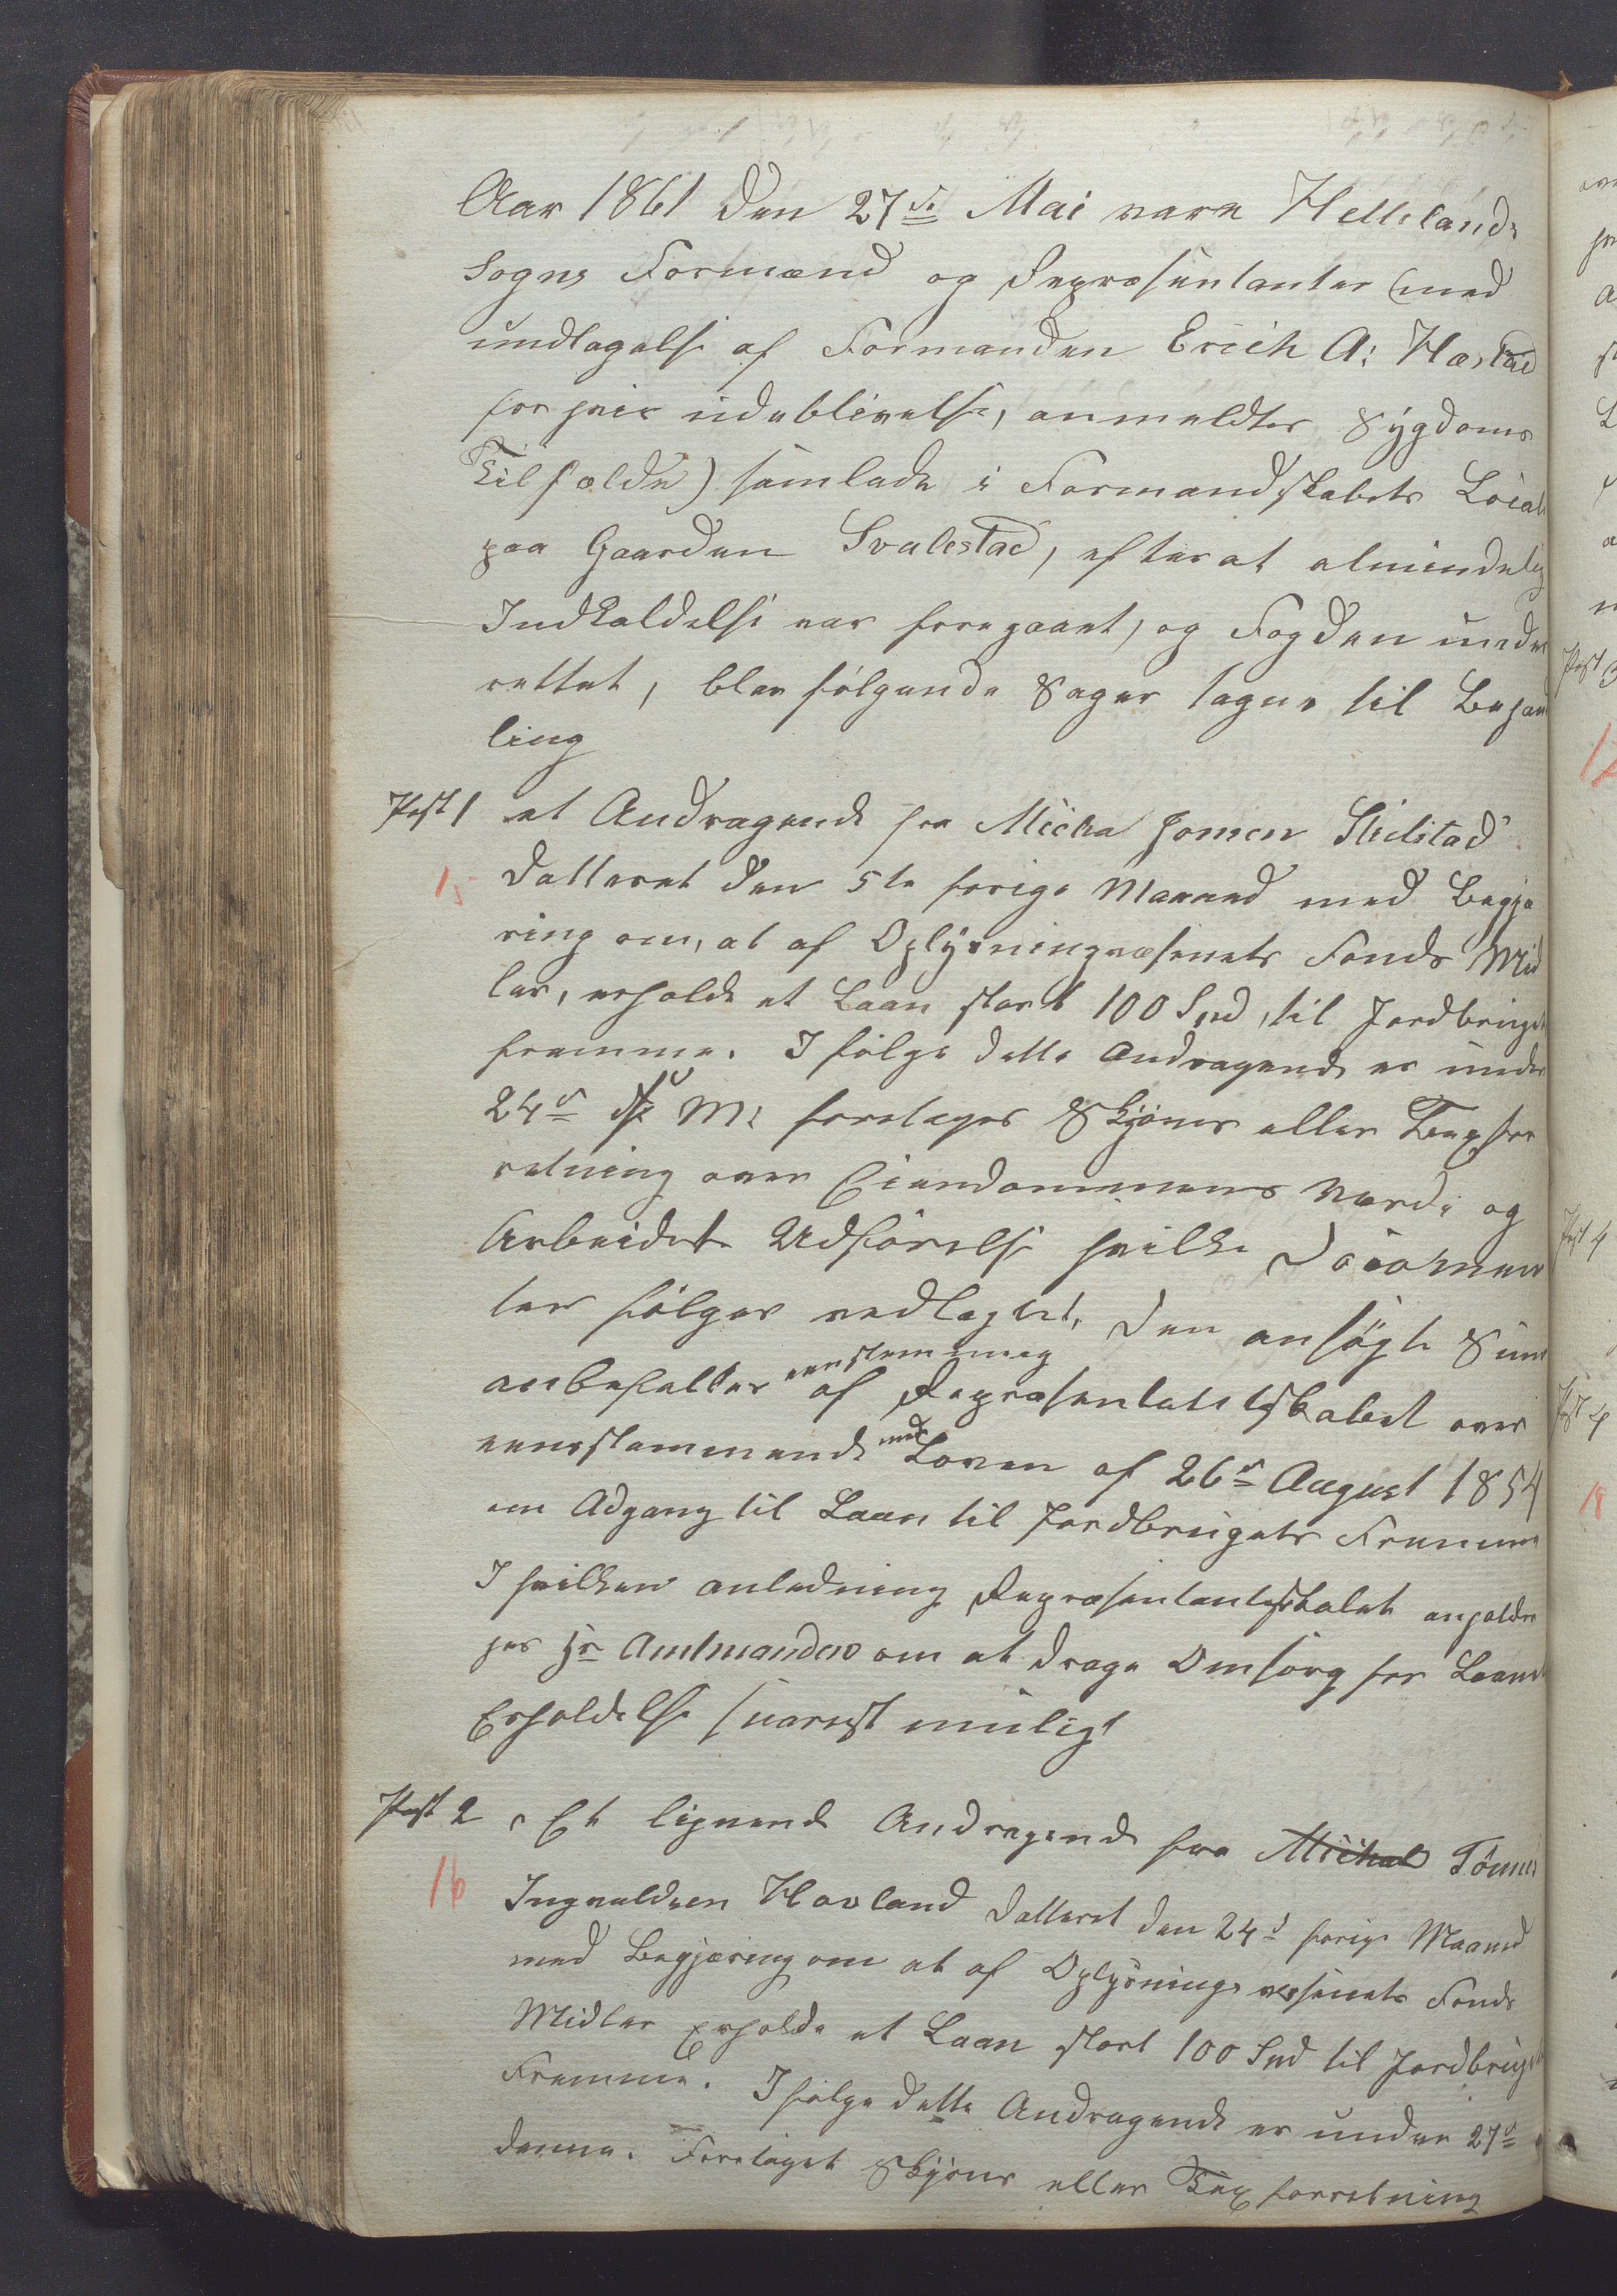 Aar 1861 den 27de Mai vare Hellelands
Sogns Formænd og Repræsentanter (med
undtagelse af Formanden Erich A: Hæstad
for hvis udeblivelse, anmeldtes Sygdoms
Tilfælde) samlede i Formandskabets Local
paa Gaarden Svalestad, efterat almindelig
Indkaldelse var foregaaet, og Fogden under
rettet, blev følgende Sager tagne til Behand
ling
Post 1 et Andragende fra Michal Jonsen
15 datteret den 5te forige Maaned med Begjæ
ring om, at af Oplysningsvæsenets Fonds Mid
ler, erholde et Laan stort 100 Spd, til Jordbrugets
fremme. I følge dette Andragende er under
24de M: foretages Skjøns eller Taxfor
retning over Eiendommens Værdi og
Arbeidets Udførelse hvilke Documen
ter følger vedlagt. Den ansøgte Sum
anbefalles eenstemmig af Repræsentatskabet over
eensstemmende med Loven af 26de August 1854
om Adgang til Laan til Jordbrugets Fremme
I hvilken anledning Repræsentantskabet anholder
hos Hr Amtmanden om at drage Omsorg for Laanets
Erholdelse snarest muligt
Post 2 Et lignende Andragende fra Michal Tønnes
16 Ingvaldsen Hovland datteret den 24d forige Maaned
med Begjæring om at af Oplysningsvæsenets Fonds
Midler Erholde et Laan stort 100 Spd til Jordbrugets
Fremme. I følge dette Andragende er under 27de
denne. Foretaget Skjøns eller Taxforretning